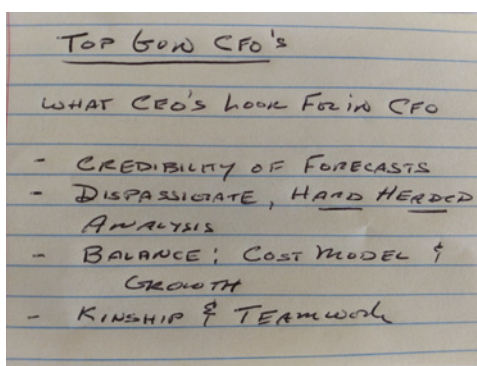 TOP GUN CFO's
WHAT CEO's LOOK FOR IN CFO
- CREDIBILITY OF FORECASTS
- DISPASSIGATE, HARD HERDED
ANALYSIS
- BALANCE: COST MODEL &
GROWTH
- KINSHIP & TEAMWORK